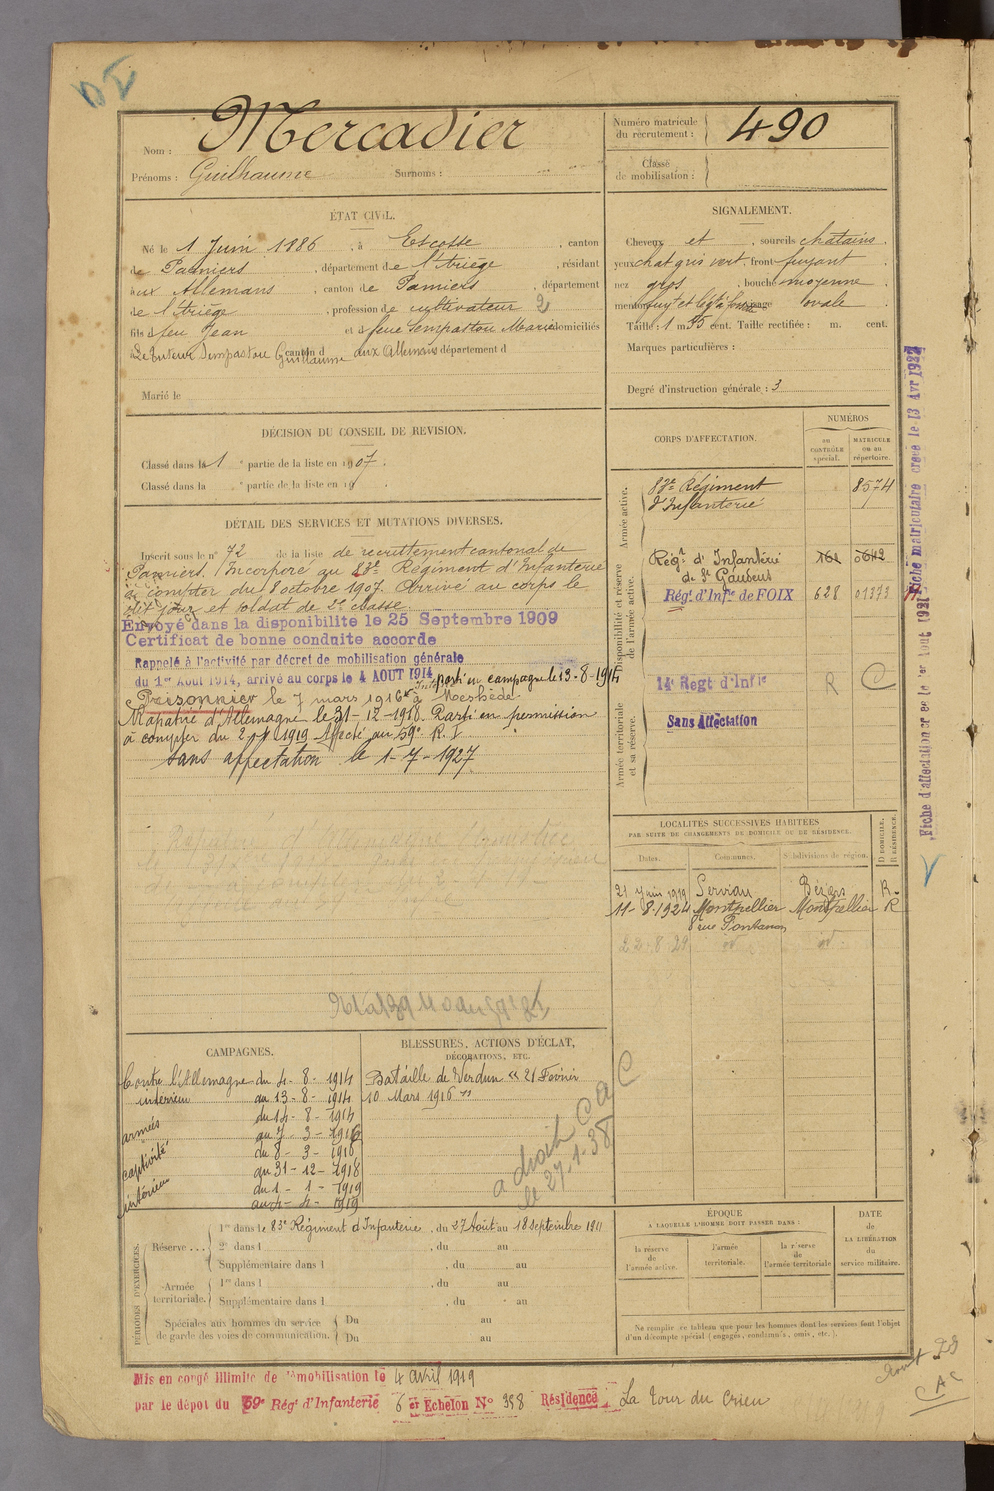 Nom : Mercadier
Prénoms : Guilhaume Surnoms :
Numéro matricule du recrutement : 490
Classe de mobilisation :
ÉTAT CIVIL.
Né le 1 Juin 1886, à Escosse, canton
de Pamiers, département de l'Ariège, résidant
aux Allemans, canton de Pamiers, département
de l'Ariège, profession de cultivateur 2
fils de feu Jean et de feue Sempastou Marie domiciliés
Le tuteur Sempastou Guillaume canton d aux Allemans département d
Marié le
SIGNALEMENT.
Cheveux et sourcils chatains.
yeux chat gris vert, front fuyant
nez gros, bouche moyenne
menton fuyt et leg visage ovale
Taille : 1 m. 55 cent. Taille rectifiée : m. cent.
Marques particulières :
Degré d'instruction générale : 3
DÉCISION DU CONSEIL DE REVISION.
Classé dans la 1 partie de la liste en 1907.
Classé dans la partie de la liste en 19 .
CORPS D'AFFECTATION.
NUMÉROS
au CONTRÔLE spécial.
MATRICULE ou au répertoire.
Armée active.
83e Régiment d'Infanterie 8574
Disponibilité et réserve de l'armée active.
Régt d'Infanterie de St Gaudens
Rég. d'Infie de FOIX 628 01373
14e Régt d'Infie R C
Armée territoriale et sa réserve.
Sans Affectation
DÉTAIL DES SERVICES ET MUTATIONS DIVERSES.
Inscrit sous le n° 72 de la liste de recrutement cantonal de
Pamiers. Incorporé au 83e Régiment d'Infanterie
à compter du 8 octobre 1907. Arrivé au corps le
dit jour et soldat de 2e classe.
Envoyé dans la disponibilite le 25 Septembre 1909
Certificat de bonne conduite accorde
Rappelé à l'activité par décret de mobilisation générale
du 1er Août 1914, arrivé au corps le 4 AOUT 1914 parti en campagne le 13-8-1914
Prisonnier le 7 mars 1916 à Meshède
Rapatrié d'Allemagne le 31-12-1918. Parti en permission
à compter du 2 1919 Affecté au 59e R.I
sans affectation le 1-7-1927
LOCALITÉS SUCCESSIVES HABITÉES
PAR SUITE DE CHANGEMENTS DE DOMICILE OU DE RÉSIDENCE.
Dates. Communes. Subdivisions de région. D DOMICILE. R RÉSIDENCE.
21 Juin 1919 Servian Béziers R.
11-8-1924 Montpellier Montpellier R
8 rue Pontanon
22-8-29 id id
CAMPAGNES.
Contre l'Allemagne du 4-8-1914
intérieur au 13-8-1914
du 14-8-1914
armées au 7-3-1916
du 8-3-1916
captivité au 31-12-1918
du 1-1-1919
intérieur au 4-4-1919
BLESSURES, ACTIONS D'ÉCLAT,
DÉCORATIONS, ETC.
Bataille de Verdun « 21 Février
10 Mars 1916 »
a droit C a C
le 27.1.38
PÉRIODES D'EXERCICES.
Réserve ... 1re dans le 83e Régiment d'Infanterie, du 27 Août au 18 septembre 1911
2e dans l , du au
Supplémentaire dans l , du au
Armée territoriale. 1re dans l , du au
Supplémentaire dans l , du au
Spéciales aux hommes du service de garde des voies de communication. Du au
Du au
ÉPOQUE
A LAQUELLE L'HOMME DOIT PASSER DANS :
la réserve de l'armée active.
l'armée territoriale.
la réserve de l'armée territoriale
DATE de LA LIBÉRATION du service militaire.
Ne remplir ce tableau que pour les hommes dont les services font l'objet
d'un décompte spécial (engagés, condamnés, omis, etc.).
Mis en congé Illimité de démobilisation le 4 avril 1919
par le dépot du 59e Rég' d'Infanterie 6 er Echelon N° 358 Résidence La tour du Crieu
Fiche matriculaire créée le 13 Avr 1927
Fiche d'affectation créée le 1er Aout 1921